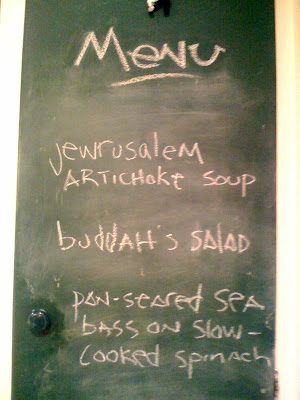 Menu
Jewrusalem
ARTICHOKE SOUP
buddAH's SALAD
pan-seared sea
bass on slow-
cooked spinach